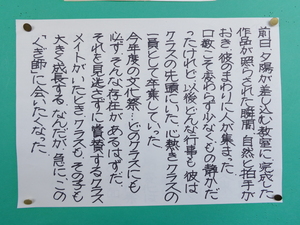 前日、夕陽が差し込む教室に完成した
作品が照らされた瞬間、自然と拍手が
おき、彼のまわりに人が集まった。
口数こそ変わらず少なくもの静かだ
ったけれど、以後どんな行事も彼は
クラスの先頭にいた。心熱きクラスの
一員として卒業していった。
今年度の文化祭…どのクラスにも
必ずそんな存在があるはずだ。
それを見逃さずに賞賛するクラス
メイトがいたとき、クラスも、その子も
大きく成長する。なんだか急に、この
「くぎ師」に会いたくなった。